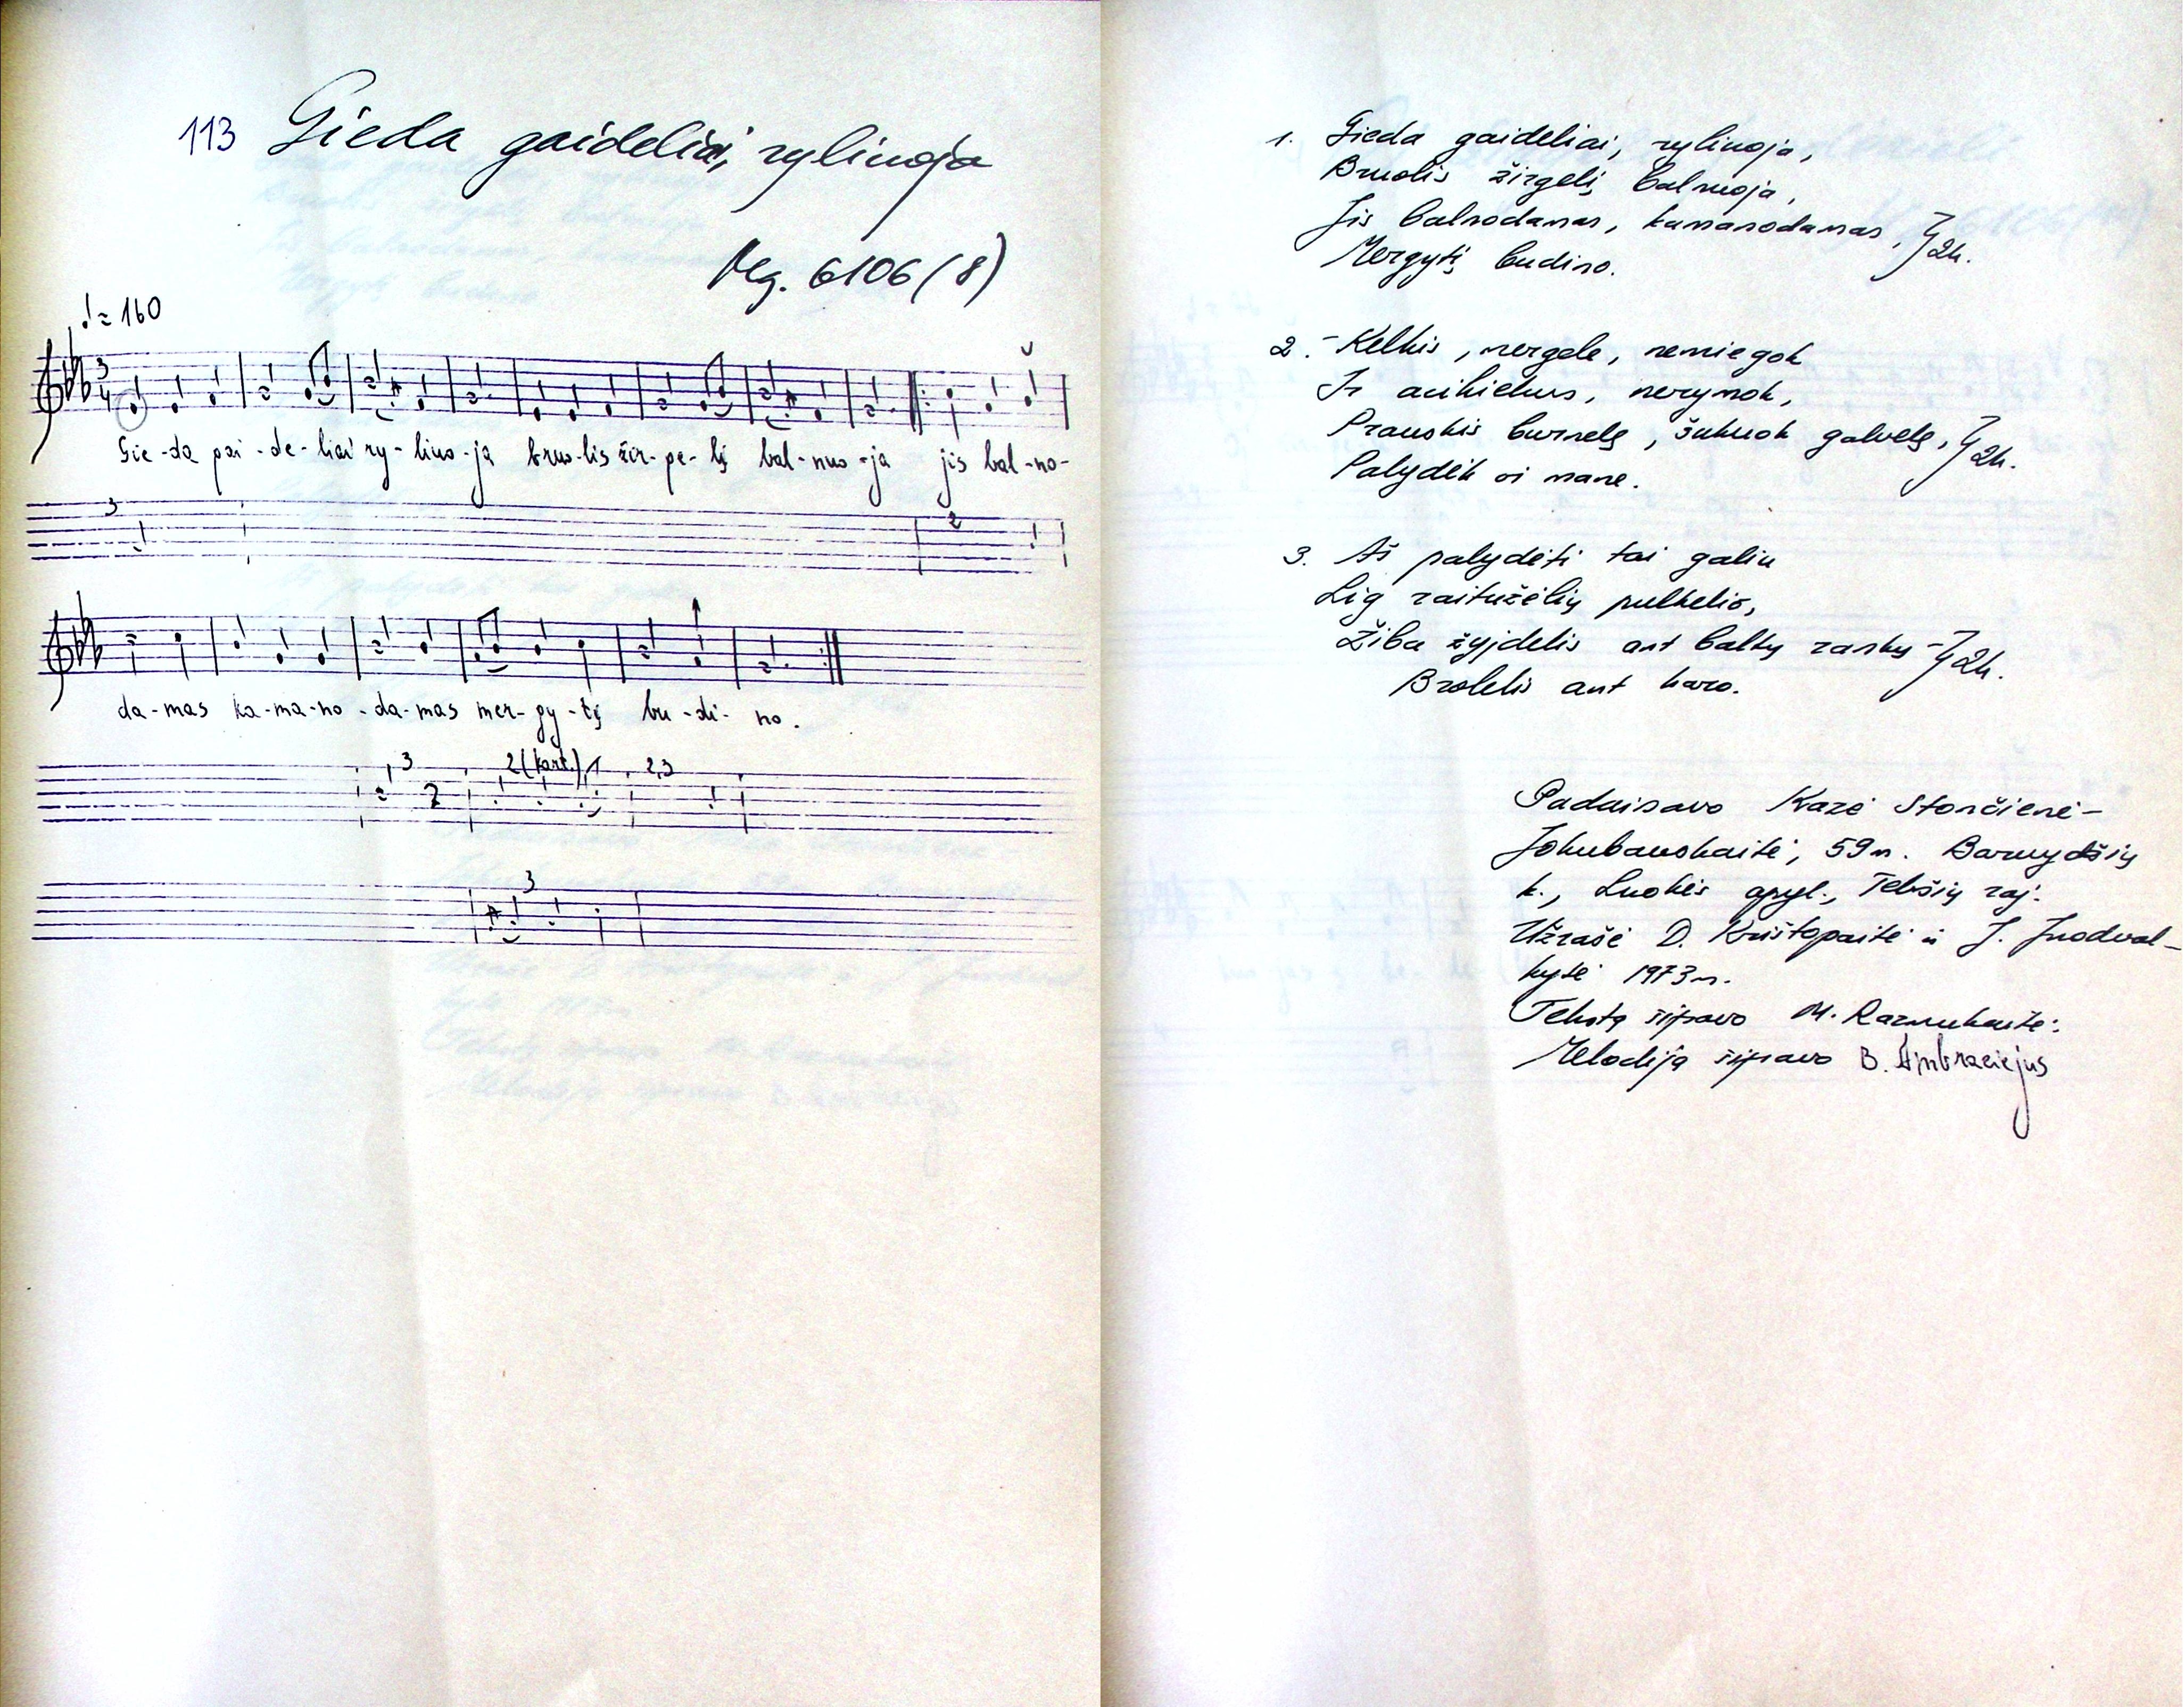 113 Gieda gaideliai, ryliuoja
Mg. 6106 (8)
♩= 160
3
4
Gie-da gai-de-liai ry-liuo-ja bruo-lis žir-ge-lį bal-nuo-ja jis bal-no-
3 2
da-mas ka-ma-no-da-mas mer-gy-tį bu-di-no.
3 2 (kart.) 1 2,3
3
1. Gieda gaideliai, ryliuoja,
Bruolis žirgelį balnuoja,
Jis balnodamas, kamanodamas, } 2k.
Mergytį budino.
2. - Kelkis, mergele, nemiegok
Ir acikielus, nerymok,
Prauskis burnelę, šukuok galvelę, } 2k.
Palydėk oi mane.
3. Aš palydėti tai galiu
Lig raitužėlių pulkelio,
Žiba žyjdelis ant baltų rankų - } 2k.
Brolelis ant karo.
Padainavo Kazė Stončienė-
Jokubauskaitė, 59 m.
k., Luokės apyl., Telšių raj.
Užrašė D. Krištopaitė ir J. Juodval-
kytė 1973 m.
Tekstą šifravo M. Razmukaitė.
Melodiją šifravo B. Ambraziejus